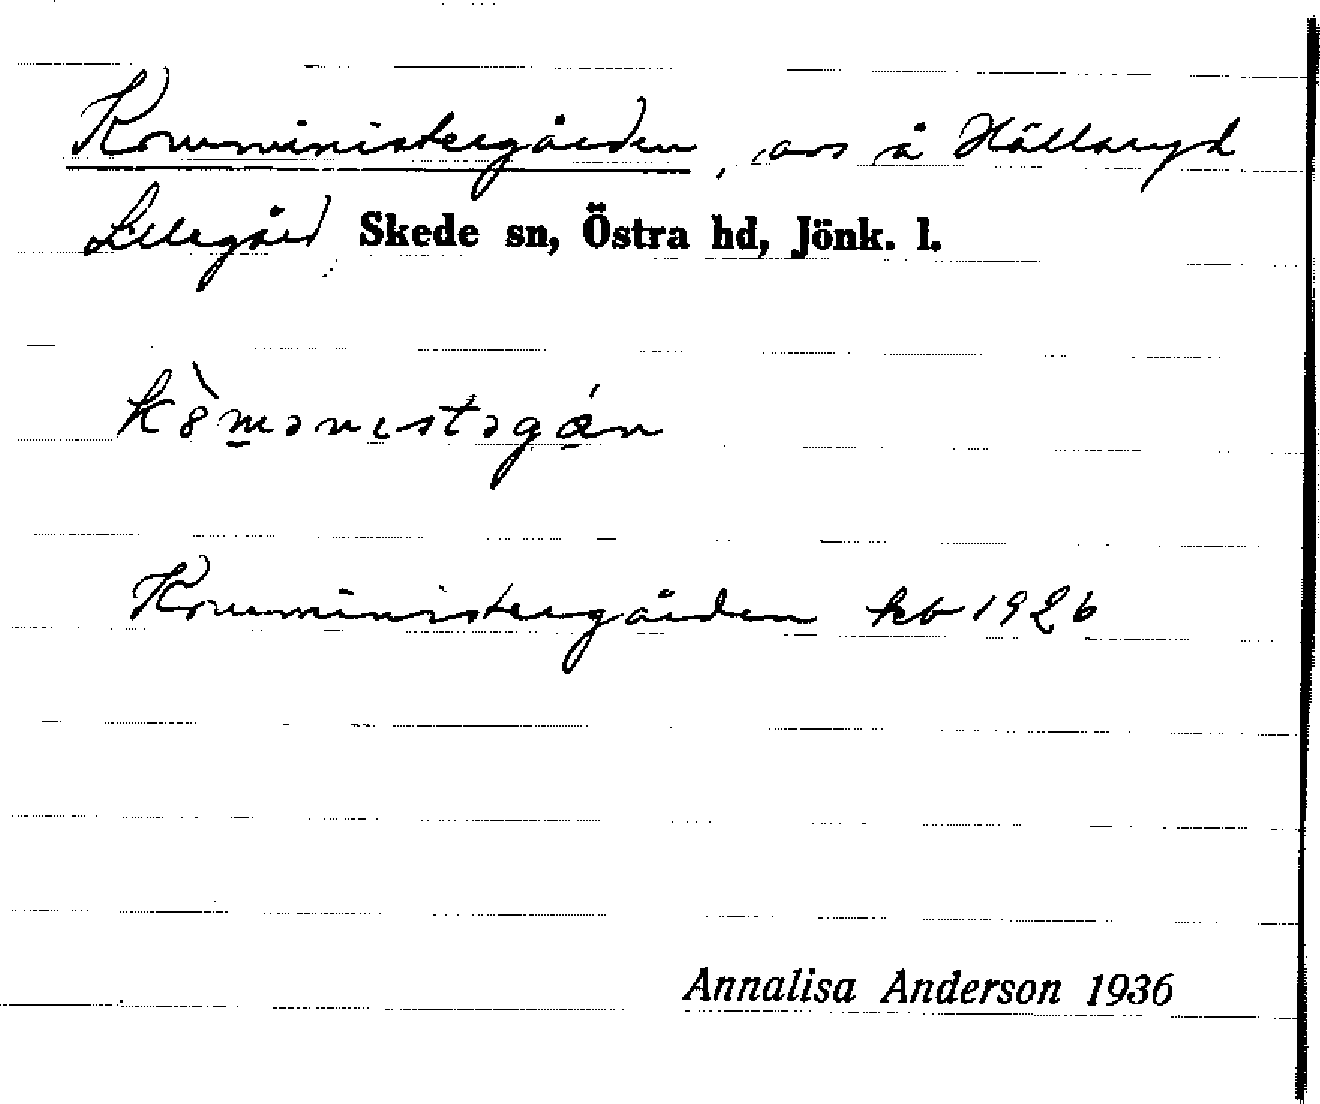 Komministergården, avs å Hällaryd
Lillegård Skede sn, Östra hd, Jönk. l.
Komministergården kb 1926
Annalisa Anderson 1936